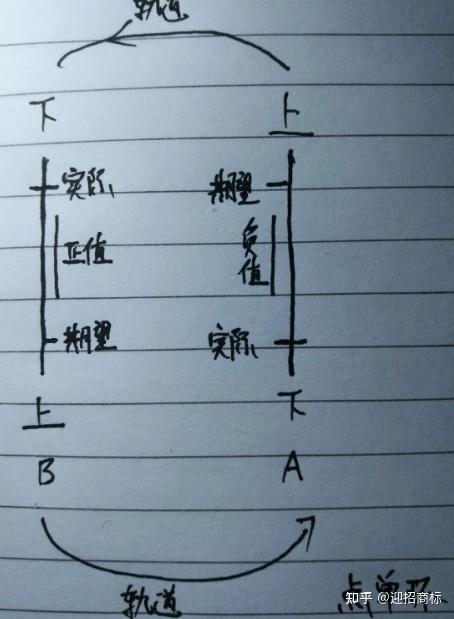 轨道
下 上
实际 期望
正值 负值
期望 实际
上 下
B A
轨道
点单环
知乎 @迎招商标